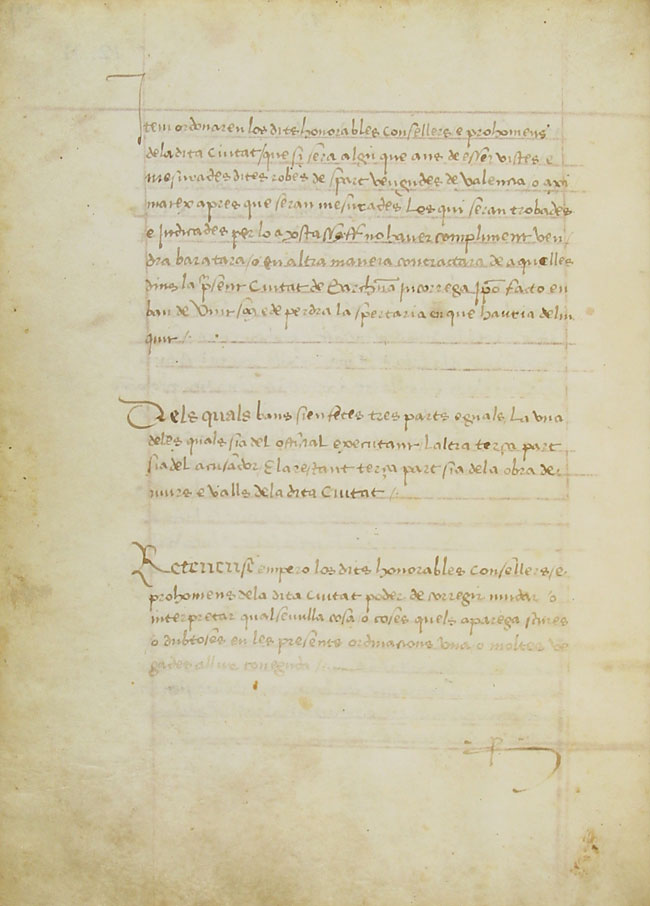 Item ordonaren los dits honorables Consellers e prohomens
dela dita Ciutat que si sera algu que ans de esser vistes e
mesurades dites robes de spart vengudes de Valencia o axi
matex apres que seran mesurades Los qui seran trobades
e Judicades per lo no haver compliment ven
dra baratara o en altra manera contractara de aquelles
dins la psent Ciutat de Barchna Incorrega Ipso facto en
ban de Vint e de perdra la sperteria en que hauria delin
quit /.
Dels quals bans sien fetes tres parts eguals La una
deles quals sia del official executant laltra terça part
sia del acusador E la restant terça part sia dela obra de
murs e valls dela dita Ciutat /.
Retenense empero los dits honorables Consellers e
prohomens dela dita Ciutat poder de corregir mudar o
interpretar qualsevulla cosa o coses quels aparega scures
o dubtoses en les presents ordinacions una o moltes ve
gades a llur coneguda /.